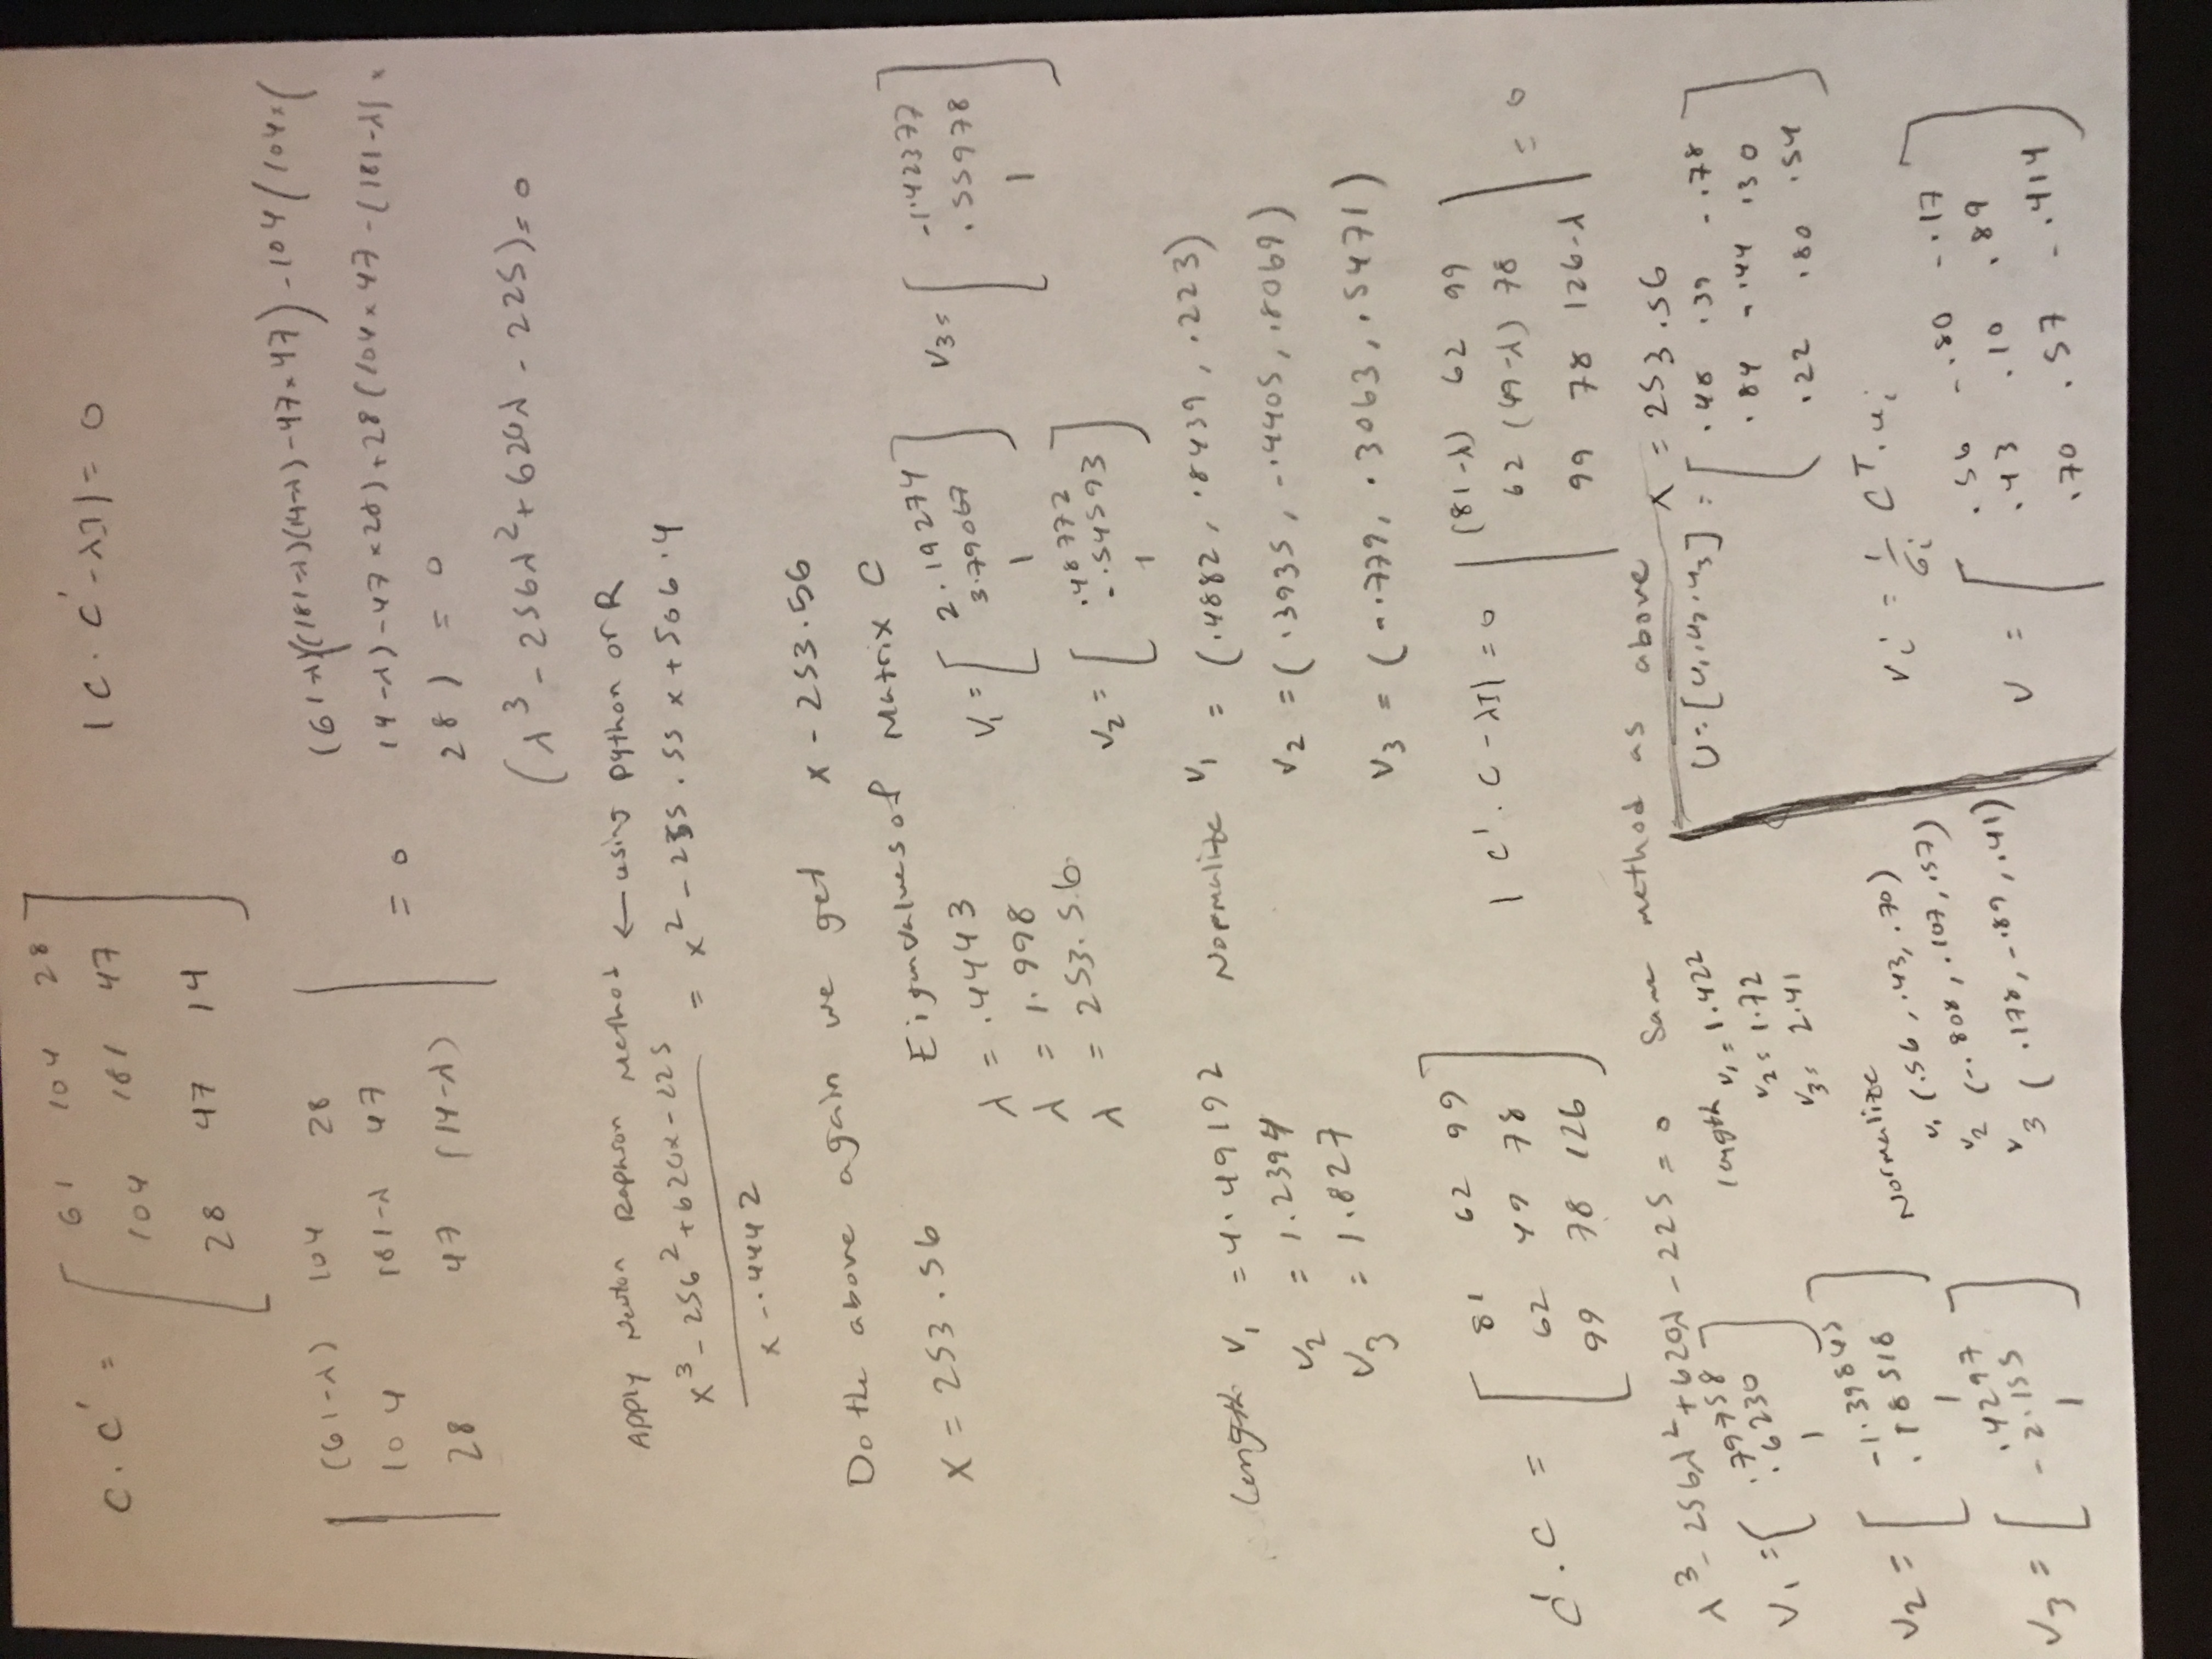 C . C' = [ 61 104 28
104 181 47
28 47 14 ]
| C . C' - λI | = 0
| (61-λ) 104 28
104 181-λ 47
28 47 (14-λ) | = 0
(61-λ)((181-λ)(14-λ) - 47×47) - 104 (104×(
14-λ) - 47×28) + 28 (104×47 - (181-λ) ×
28) = 0
(λ³ - 256λ² + 620λ - 225) = 0
Apply Newton Raphson Method ← using python or R
x³ - 256² + 620x - 225
x - .4442
= x² - 255.55 x + 506.4
Do the above again we get x - 253.56
x = 253.56
Eigenvalues of Matrix C
λ = .4443
λ = 1.998
λ = 253.56
V₁ = [ 2.19274
3.79067
1 ]
V₃ = [ -1.42377
.55978
1 ]
V₂ = [ .48772
-.54593
1 ]
Length V₁ = 4.49192
V₂ = 1.2394
V₃ = 1.827
Normalize V₁ = (.4882, .8439, .223)
V₂ = (.3935, -.4405, .8069)
V₃ = (-.779, .3063, .5471)
C' . C = [ 81 62 99
62 49 78
99 78 126 ]
| C' . C - λI | = 0
| (81-λ) 62 99
62 (49-λ) 78
99 78 126-λ | = 0
λ³ - 256λ² + 620λ - 225 = 0 Same method as above
x = 253.56
V₁ = [ .79758
.6230
1 ]
V₂ = [ -1.39845
.18518
1 ]
V₃ = [ .4297
-2.155
1 ]
length V₁ = 1.422
V₂ = 1.72
V₃ = 2.41
Normalize
V₁ (.56, .43, .70)
V₂ (-.808, .107, .57)
V₃ (.178, -.89, .41)
U = [u₁.u₂.u₃] = [ .48 .39 -.78
.84 -.44 .30
.22 .80 .54 ]
vᵢ = 1/σᵢ Cᵀ . uᵢ
V = [ .56 -.80 -.17
.43 .10 .89
.70 .57 -.414 ]